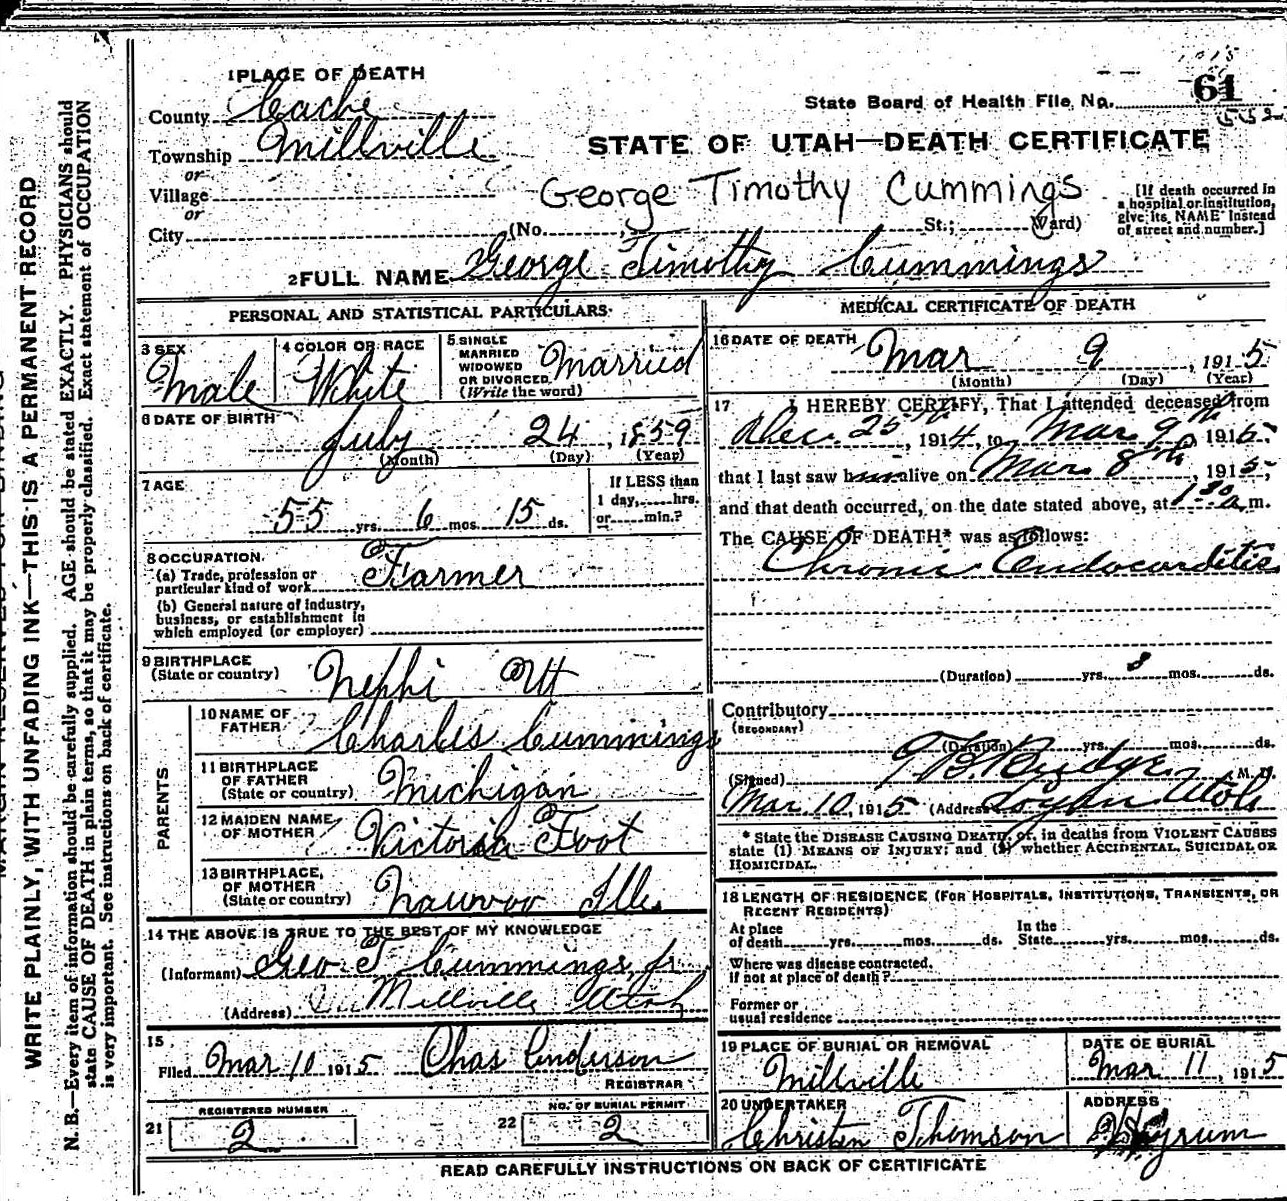 1 PLACE OF DEATH
County Cache
Township Millville
or
Village
or
City (No. St.; Ward)
1915
State Board of Health File No. 61
552
STATE OF UTAH—DEATH CERTIFICATE
George Timothy Cummings
[If death occurred in
a hospital or institution,
give its NAME instead
of street and number.]
2 FULL NAME George Timothy Cummings
PERSONAL AND STATISTICAL PARTICULARS
3 SEX Male
4 COLOR OR RACE White
5 SINGLE
MARRIED
WIDOWED
OR DIVORCED
(Write the word) Married
6 DATE OF BIRTH
July 24, 1859
(Month) (Day) (Year)
7 AGE
55 yrs. 6 mos. 15 ds.
If LESS than
1 day,......hrs.
or......min.?
8 OCCUPATION
(a) Trade, profession or
particular kind of work Farmer
(b) General nature of industry,
business, or establishment in
which employed (or employer)
9 BIRTHPLACE
(State or country) Nephi Ut
PARENTS
10 NAME OF
FATHER Charles Cummings
11 BIRTHPLACE
OF FATHER
(State or country) Michigan
12 MAIDEN NAME
OF MOTHER Victoria Foot
13 BIRTHPLACE,
OF MOTHER
(State or country) Nauvoo Ills
14 THE ABOVE IS TRUE TO THE BEST OF MY KNOWLEDGE
(Informant) Geo. T. Cummings, jr
(Address) Millville Utah
15
Filed Mar 10 1915 Chas Anderson
REGISTRAR
21 REGISTERED NUMBER
2
22 NO. OF BURIAL PERMIT
2
MEDICAL CERTIFICATE OF DEATH
16 DATE OF DEATH
Mar 9, 1915
(Month) (Day) (Year)
17 I HEREBY CERTIFY, That I attended deceased from
Dec. 25th, 1914, to Mar 9th 1915,
that I last saw him alive on Mar. 8th, 1915,
and that death occurred, on the date stated above, at 1 30 a m.
The CAUSE OF DEATH* was as follows:
Chronic Endocarditis
(Duration) yrs. 8 mos. ds.
Contributory
(SECONDARY)
(Duration) yrs. mos. ds.
(Signed) Budge M. D.
Mar 10, 1915 (Address) Logan Utah
* State the DISEASE CAUSING DEATH, or, in deaths from VIOLENT CAUSES
state (1) MEANS OF INJURY; and (2) whether ACCIDENTAL, SUICIDAL OR
HOMICIDAL.
18 LENGTH OF RESIDENCE (FOR HOSPITALS, INSTITUTIONS, TRANSIENTS, OR
RECENT RESIDENTS)
At place
of death......yrs......mos......ds.
In the
State......yrs......mos......ds.
Where was disease contracted,
if not at place of death?
Former or
usual residence
19 PLACE OF BURIAL OR REMOVAL
Millville
DATE OF BURIAL
Mar 11, 1915
20 UNDERTAKER
Christen Thomson
ADDRESS
Hyrum
READ CAREFULLY INSTRUCTIONS ON BACK OF CERTIFICATE
WRITE PLAINLY, WITH UNFADING INK—THIS IS A PERMANENT RECORD
N. B.—Every item of information should be carefully supplied. AGE should be stated EXACTLY. PHYSICIANS should
state CAUSE OF DEATH in plain terms, so that it may be properly classified. Exact statement of OCCUPATION
is very important. See instructions on back of certificate.